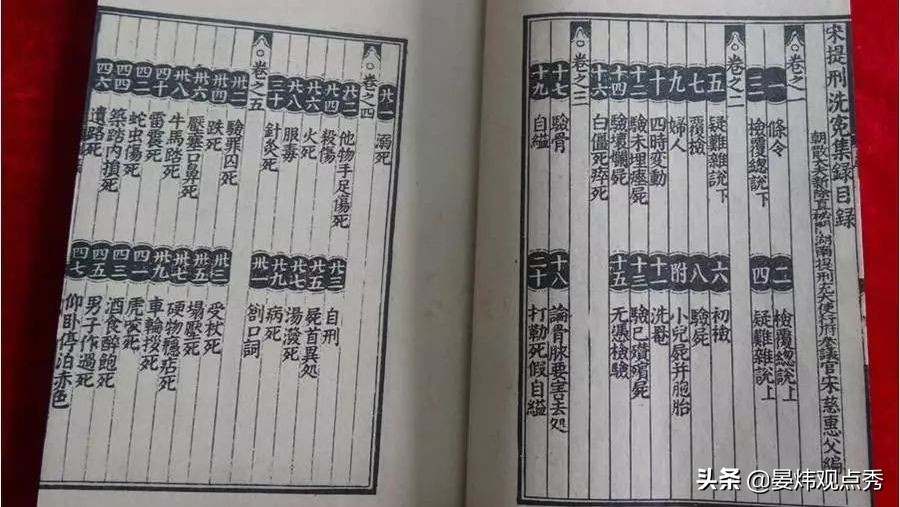 宋提刑洗冤集録目録
朝散大夫新除直秘閣湖南提刑充大使行府參議官宋慈惠父編
卷之一
一 條令 二 檢覆總說上
三 檢覆總說下 四 疑難雜說上
卷之二
五 疑難雜說下 六 初檢
七 覆檢 八 驗屍
九 婦人 附 小兒屍并胞胎
十 四時變動 十一 洗罨
十二 驗未埋瘞屍 十三 驗已殯屍
十四 驗壞爛屍 十五 无憑檢驗
十六 白僵死猝死
卷之三
十七 驗骨 十八 論骨脉要害去処
十九 自縊 二十 打勒死假自縊
廿一 溺死
卷之四
廿二 他物手足傷死 廿三 自刑
廿四 殺傷 廿五 屍首異処
廿六 火死 廿七 湯潑死
廿八 服毒 廿九 病死
三十 針灸死 卅一 劄口詞
卷之五
卅二 驗罪囚死 卅三 受杖死
卅四 跌死 卅五 塌壓死
卅六 壓塞口鼻死 卅七 硬物癮痁死
卅八 牛馬踏死 卅九 車輪拶死
四十 雷震死 四一 虎咬死
四二 蛇虫傷死 四三 酒食醉飽死
四四 築踏内損死 四五 男子作過死
四六 遺路死 四七 仰卧停泊赤色
头条 @晏炜观点秀